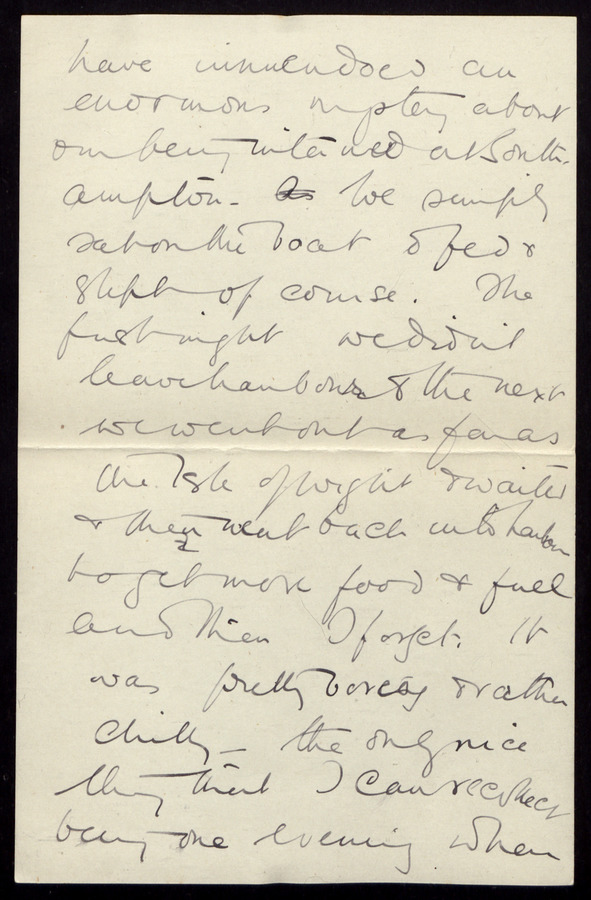 have innuendoed an
enormous mystery about
our being interned at South-
ampton - As We simply
sat on the boat & fed &
slept of course. The
first night we didn't
leave harbour & the next
we went out as far as
the Isle of Wight & waited
& then went back into harbour
to get more food & fuel
and then I forget. It
was pretty boring & rather
chilly - the only nice
thing that I can recollect
being one evening when